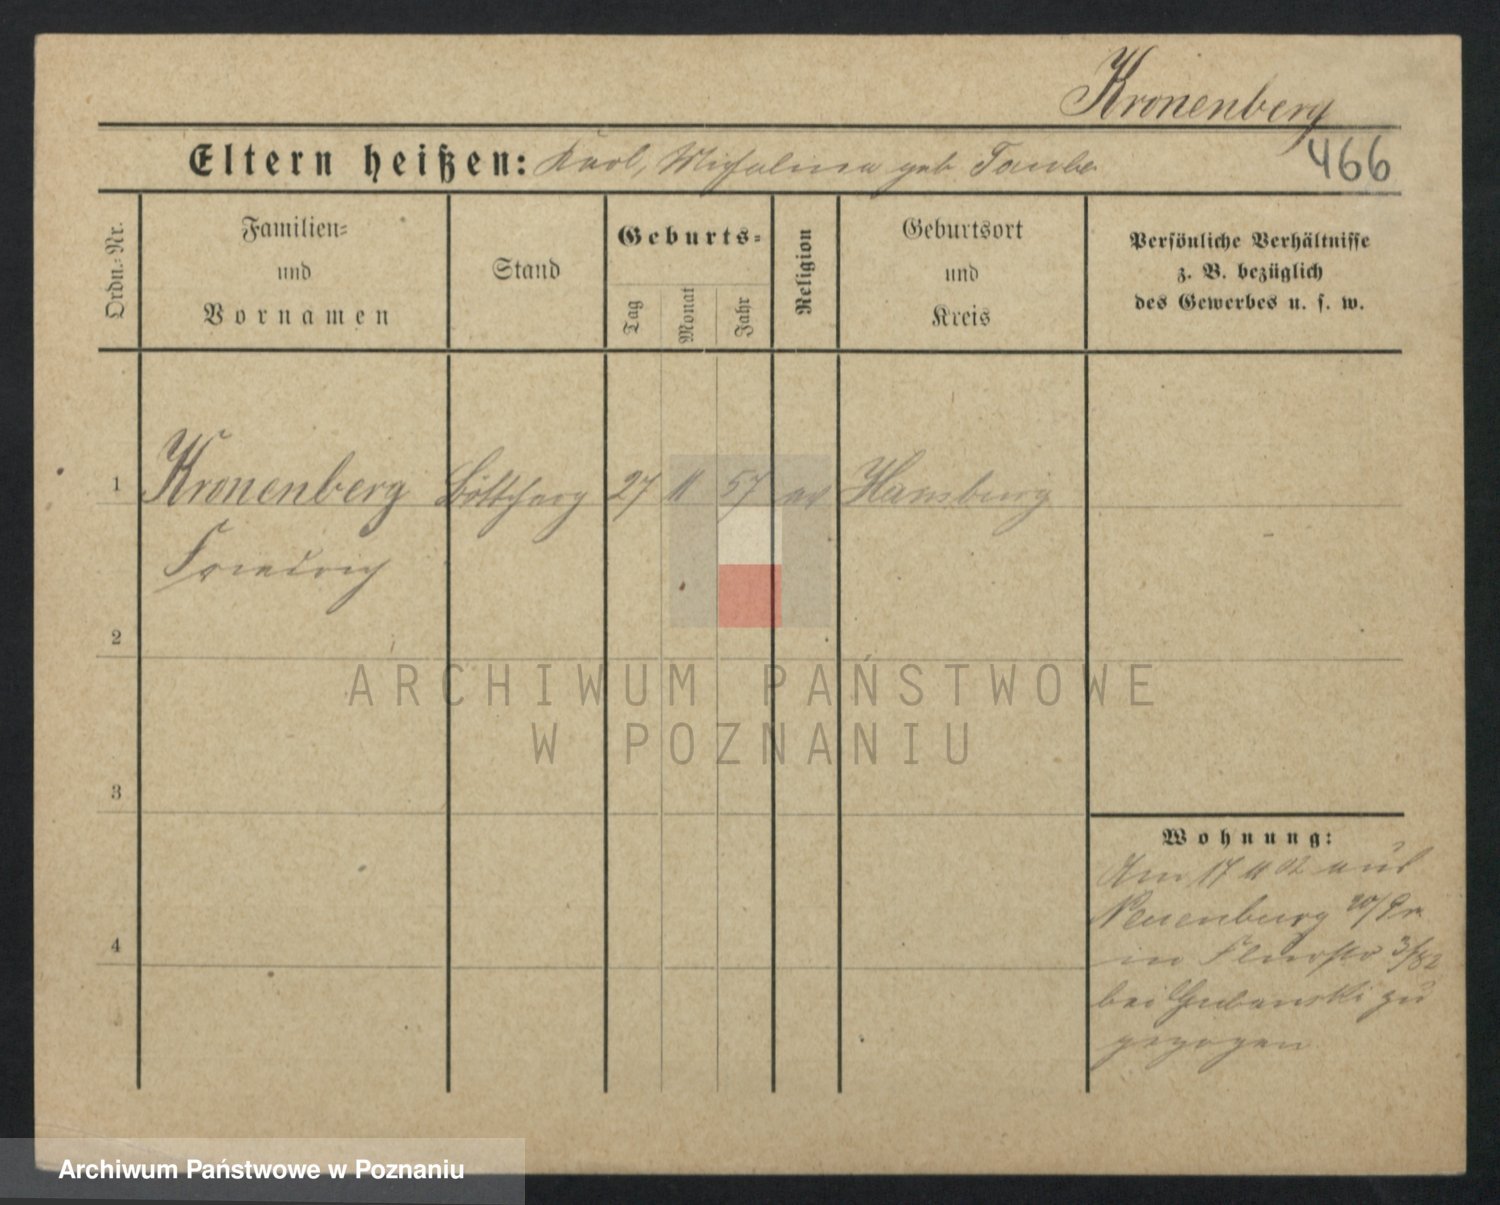 Kronenberg
466
Eltern heißen: Karl, Michalina geb. Taube
Ordn.-Nr.
Familien-
und
Vornamen
Stand
Geburts-
Tag
Monat
Jahr
Religion
Geburtsort
und
Kreis
Persönliche Verhältnisse
z. B. bezüglich
des Gewerbes u. s. w.
1 Kronenberg Böttcherg 27 11 57 ev Hamburg
Friedrich
2
3
4
Wohnung:
Am 17 11 02 aus
Neuenburg
in
bei zu
gezogen
ARCHIWUM PAŃSTWOWE
W POZNANIU
Archiwum Państwowe w Poznaniu